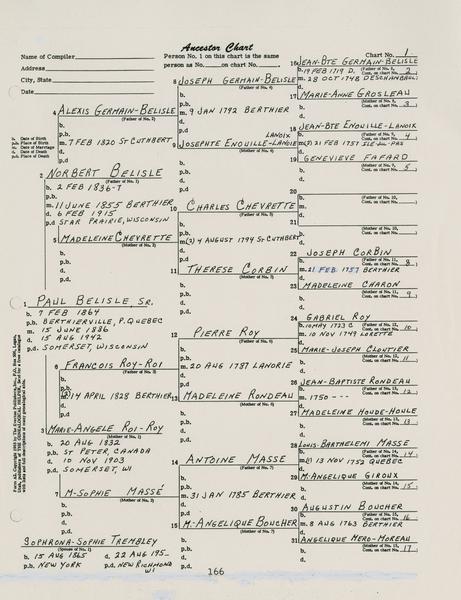 Ancestor Chart
Name of Compiler
Address
City, State
Date
Person No. 1 on this chart is the same
person as No. on chart No. .
Chart No. 1
16 JEAN-BTE GERMAIN-BELISLE
(Father of No. 8, Cont. on chart No. 2)
b. 19 FEB 1719 D.
m. 28 OCT 1748 DESCHAMBAULT
8 JOSEPH GERMAIN-BELISLE
(Father of No. 4)
b.
17 MARIE-ANNE GROSLEAU
(Mother of No. 8, Cont. on chart No. 3)
b.
m.
4 ALEXIS GERMAIN-BELISLE
(Father of No. 2)
m. 9 JAN 1792 BERTHIER
b.
p.b.
m. 7 FEB 1820 ST CUTHBERT
d.
p.d.
b. Date of Birth
p.b. Place of Birth
m. Date of Marriage
d. Date of Death
p.d. Place of Death
18 JEAN-BTE ENOUILLE-LANOIX
(Father of No. 9, Cont. on chart No. 4)
m. (3) 21 FEB 1757 ILE JU-PAS
LANOIX
9 JOSEPHTE ENOUILLE-LANOIE
(Mother of No. 4)
19 GENEVIEVE FAFARD
(Mother of No. 9, Cont. on chart No. 5)
2 NORBERT BELISLE
(Father of No. 1)
b. 2 FEB 1836-T
p.b.
m. 11 JUNE 1855 BERTHIER
d. 6 FEB 1915
p.d. STAR PRAIRIE, WISCONSIN
20
(Father of No. 10, Cont. on chart No. )
10 CHARLES CHEVRETTE
(Father of No. 5)
21
(Mother of No. 10, Cont. on chart No. )
5 MADELEINE CHEVRETTE
(Mother of No. 2)
m. (2) 4 AUGUST 1794 ST CUTHBERT
22 JOSEPH CORBIN
(Father of No. 11, Cont. on chart No. 8)
m. 21 FEB 1757 BERTHIER
11 THERESE CORBIN
(Mother of No. 5)
23 MADELEINE CHARON
(Mother of No. 11, Cont. on chart No. 9)
1 PAUL BELISLE, SR.
b. 7 FEB 1864
p.b. BERTHIERVILLE, P. QUEBEC
m. 15 JUNE 1886
d. 15 AUG 1942
p.d. SOMERSET, WISCONSIN
24 GABRIEL ROY
(Father of No. 12, Cont. on chart No. 10)
b. 10 MAY 1723 C
m. 10 NOV 1749 LORETTE
12 PIERRE ROY
(Father of No. 6)
25 MARIE-JOSEPH CLOUTIER
(Mother of No. 12, Cont. on chart No. 11)
6 FRANCOIS ROY-ROI
(Father of No. 3)
m. 20 AUG 1787 LANORIE
m. (2) 14 APRIL 1828 BERTHIER
26 JEAN-BAPTISTE RONDEAU
(Father of No. 13, Cont. on chart No. 12)
m. 1750 - - -
13 MADELEINE RONDEAU
(Mother of No. 6)
27 MADELEINE HOUDE-HOULE
(Mother of No. 13, Cont. on chart No. 13)
3 MARIE-ANGELE ROI-ROY
(Mother of No. 1)
b. 20 AUG 1832
p.b. ST PETER, CANADA
d. 10 NOV 1903
p.d. SOMERSET, WI
28 LOUIS-BARTHELEMI MASSE
(Father of No. 14, Cont. on chart No. 14)
m. (1) 13 NOV 1752 QUEBEC
14 ANTOINE MASSE
(Father of No. 7)
29 M-ANGELIQUE GIROUX
(Mother of No. 14, Cont. on chart No. 15)
7 M-SOPHIE MASSÉ
(Mother of No. 3)
m. 31 JAN 1785 BERTHIER
30 AUGUSTIN BOUCHER
(Father of No. 15, Cont. on chart No. 16)
m. 8 AUG 1763 BERTHIER
15 M-ANGELIQUE BOUCHER
(Mother of No. 7)
31 ANGELIQUE HERO-MOREAU
(Mother of No. 15, Cont. on chart No. 17)
SOPHRONA-SOPHIE TREMBLEY
(Spouse of No. 1)
b. 15 AUG 1865 d. 22 AUG 195-
p.b. NEW YORK p.d. NEW RICHMOND
WI
166